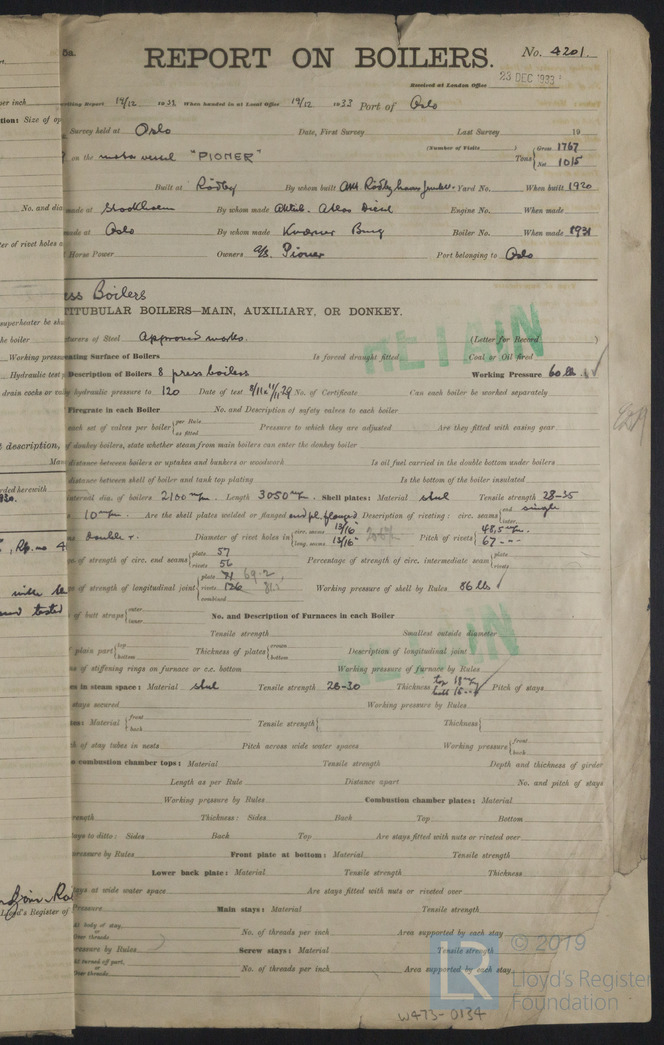 5a.
REPORT ON BOILERS.
No. 4201.
Received at London Office 23 DEC 1933
writing Report 14/12 1933 When handed in at Local Office 19/12 1933 Port of Oslo
Survey held at Oslo Date, First Survey Last Survey 19
(Number of Visits )
on the motor vessel "PIONER" Tons { Gross 1767 Net 1015
Built at Rödby By whom built Yard No. When built 1920
made at Stockholm By whom made Aktieb. Atlas Diesel Engine No. When made
made at Oslo By whom made Kværner Brug Boiler No. When made 1931
Horse Power Owners A/S. Pioner Port belonging to Oslo
ess Boilers
TITUBULAR BOILERS—MAIN, AUXILIARY, OR DONKEY.
turers of Steel Approved works. (Letter for Record )
RETAIN
ating Surface of Boilers Is forced draught fitted Coal or Oil fired
Description of Boilers 8 press boilers Working Pressure 60 lb.
by hydraulic pressure to 120 Date of test No. of Certificate Can each boiler be worked separately
Firegrate in each Boiler No. and Description of safety valves to each boiler
each set of valves per boiler { per Rule as fitted Pressure to which they are adjusted Are they fitted with easing gear
of donkey boilers, state whether steam from main boilers can enter the donkey boiler
distance between boilers or uptakes and bunkers or woodwork Is oil fuel carried in the double bottom under boilers
distance between shell of boiler and tank top plating Is the bottom of the boiler insulated
nternal dia. of boilers 2100 m/m. Length 3050 m/m. Shell plates: Material steel Tensile strength 28-35
10 m/m. Are the shell plates welded or flanged end pl. flanged Description of riveting: circ. seams { end single inter.
double r. Diameter of rivet holes in { circ. seams 13/16" long. seams 13/16" Pitch of rivets { 48,5 m/m. 67 - - -
of strength of circ. end seams { plate 57 rivets 56 Percentage of strength of circ. intermediate seam { plate rivets
of strength of longitudinal joint { plate 71 69.2 rivets 126 combined Working pressure of shell by Rules 86 lbs
of butt straps { outer inner No. and Description of Furnaces in each Boiler
Tensile strength Smallest outside diameter
RETAIN
plain part { top bottom Thickness of plates { crown bottom Description of longitudinal joint
of stiffening rings on furnace or c.c. bottom Working pressure of furnace by Rules
es in steam space: Material steel Tensile strength 28-30 Thickness Pitch of stays
stays secured Working pressure by Rules
Material { front back Tensile strength { Thickness {
h of stay tubes in nests Pitch across wide water spaces Working pressure { front back
combustion chamber tops: Material Tensile strength Depth and thickness of girder
Length as per Rule Distance apart No. and pitch of stays
Working pressure by Rules Combustion chamber plates: Material
trength Thickness: Sides Back Top Bottom
tays to ditto: Sides Back Top Are stays fitted with nuts or riveted over
pressure by Rules Front plate at bottom: Material Tensile strength
Lower back plate: Material Tensile strength Thickness
tays at wide water space Are stays fitted with nuts or riveted over
Pressure Main stays: Material Tensile strength
At body of stay, or Over threads No. of threads per inch Area supported by each stay
ressure by Rules Screw stays: Material Tensile strength
At turned off part, or Over threads No. of threads per inch Area supported by each stay
LR © 2019
Lloyd's Register
Foundation
W473-0134
per inch
tion: Size of op
No. and dia
ter of rivet holes a
superheater be sh
he boiler
Working pressu
Hydraulic test p
drain cocks or va
t description,
Man
rded herewith
, Rp. no 4
will be
and tested
Lloyd's Register of